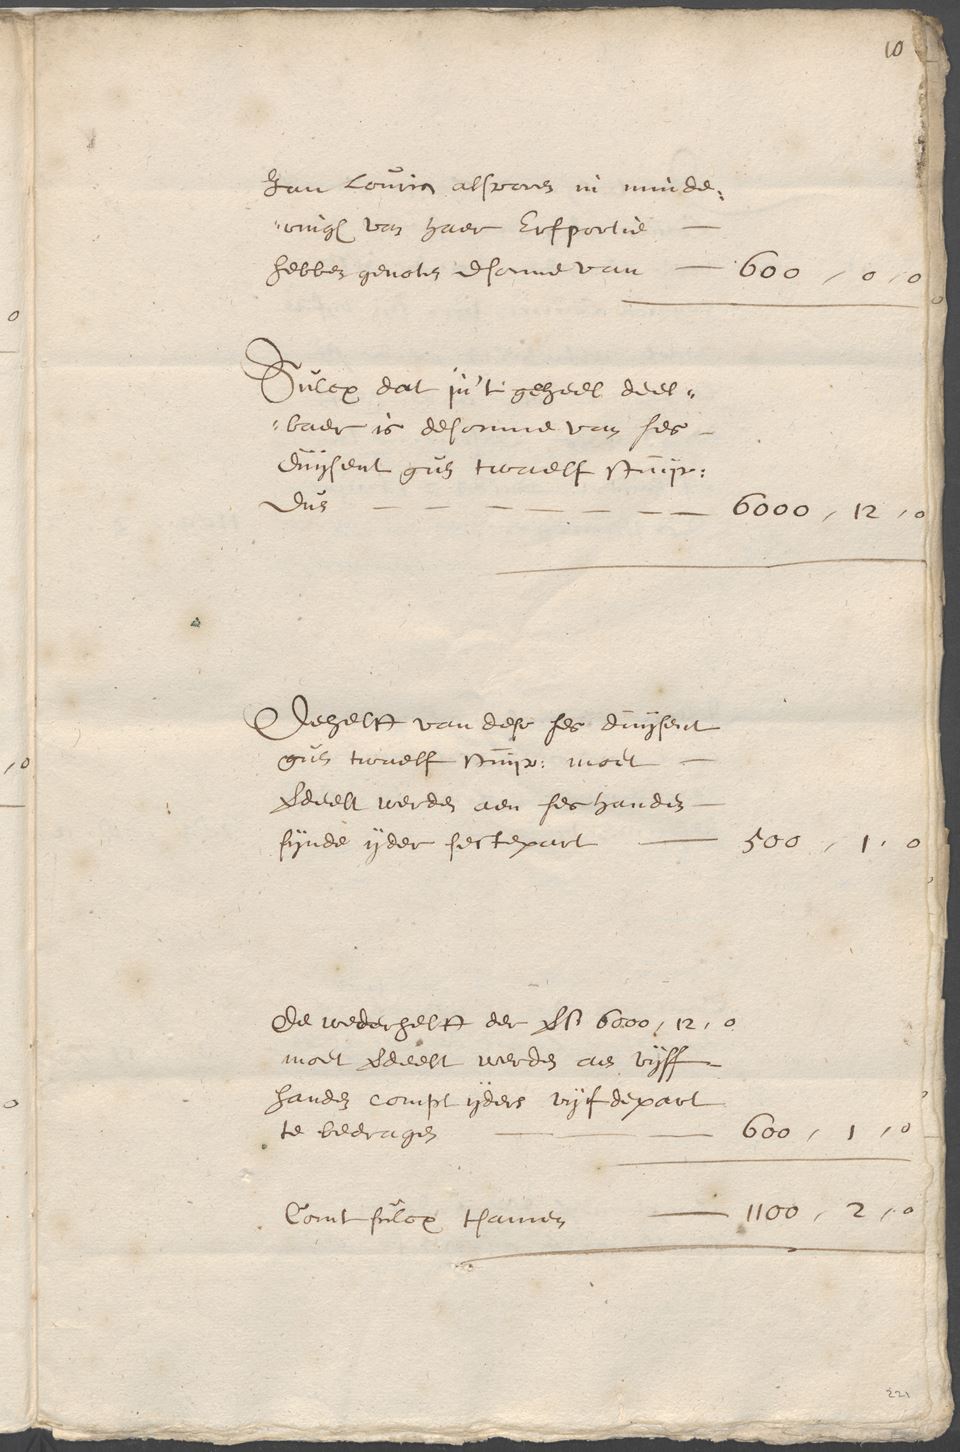 10
Jan Louris alsvoren in minde:
"ringh van haer Erfportie —
hebben genoten dsomme van — 600 , 0 , 0
Sulcx dat in't geheel deel"
"baer is desomme van ses –
duijsent guls twaelf stuijv:
Dus — — — — — — — 6000 , 12 , 0
De helft van dese ses duijsent
guls twaelf stuijv: moet —
gedeelt werden aen ses handen —
sijnde ijder seste part — 500 , 1 , 0
De wederhelft der 6000 , 12 , 0
moet gedeelt werden aen vijff –
handen compt ijders vijfdepart
te bedragen — — — 600 , 1 , 0
Comt sulcx tsamen — 1100 , 2 , 0
221